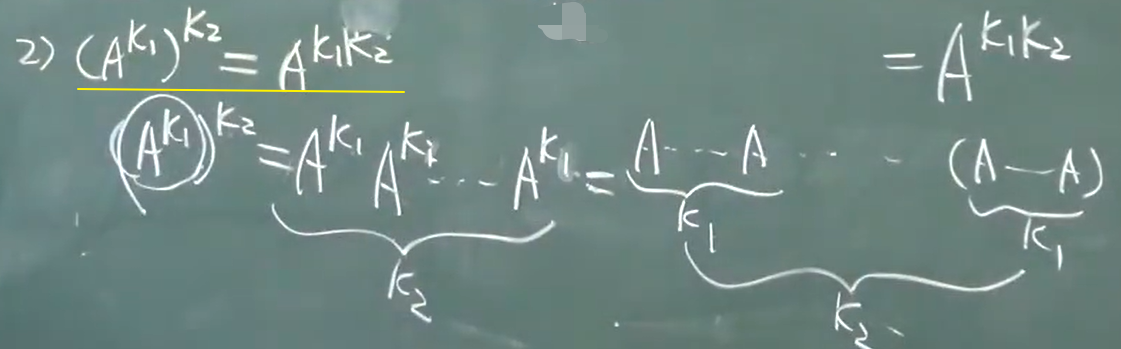 2) (A^{K_1})^{K_2} = A^{K_1K_2}
(A^{K_1})^{K_2} = \underbrace{A^{K_1} A^{K_1} \cdots A^{K_1}}_{K_2} = \underbrace{\underbrace{A \cdots A}_{K_1} \cdots \underbrace{(A — A)}_{K_1}}_{K_2}
= A^{K_1K_2}